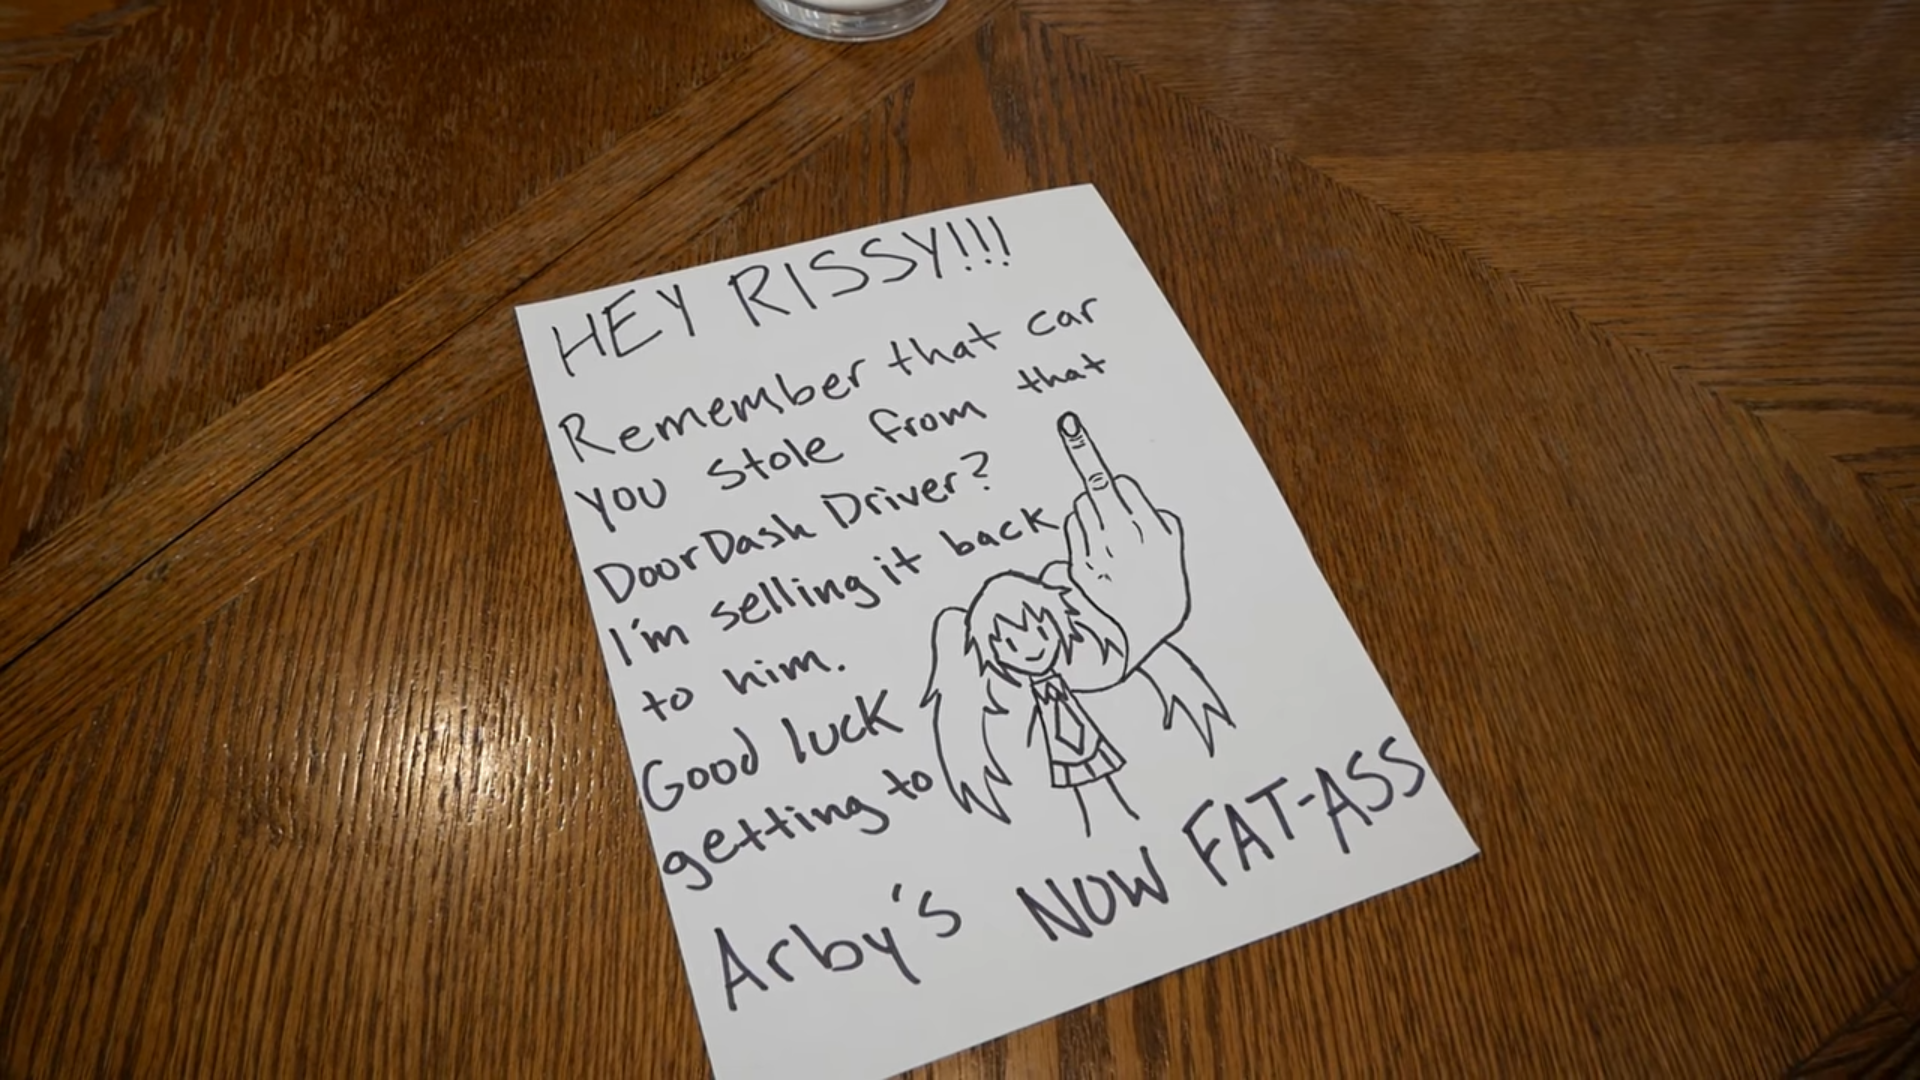 HEY RISSY!!!
Remember that car
you stole from that
DoorDash Driver?
I'm selling it back
to him.
Good luck
getting to
Arby's NOW FAT-ASS